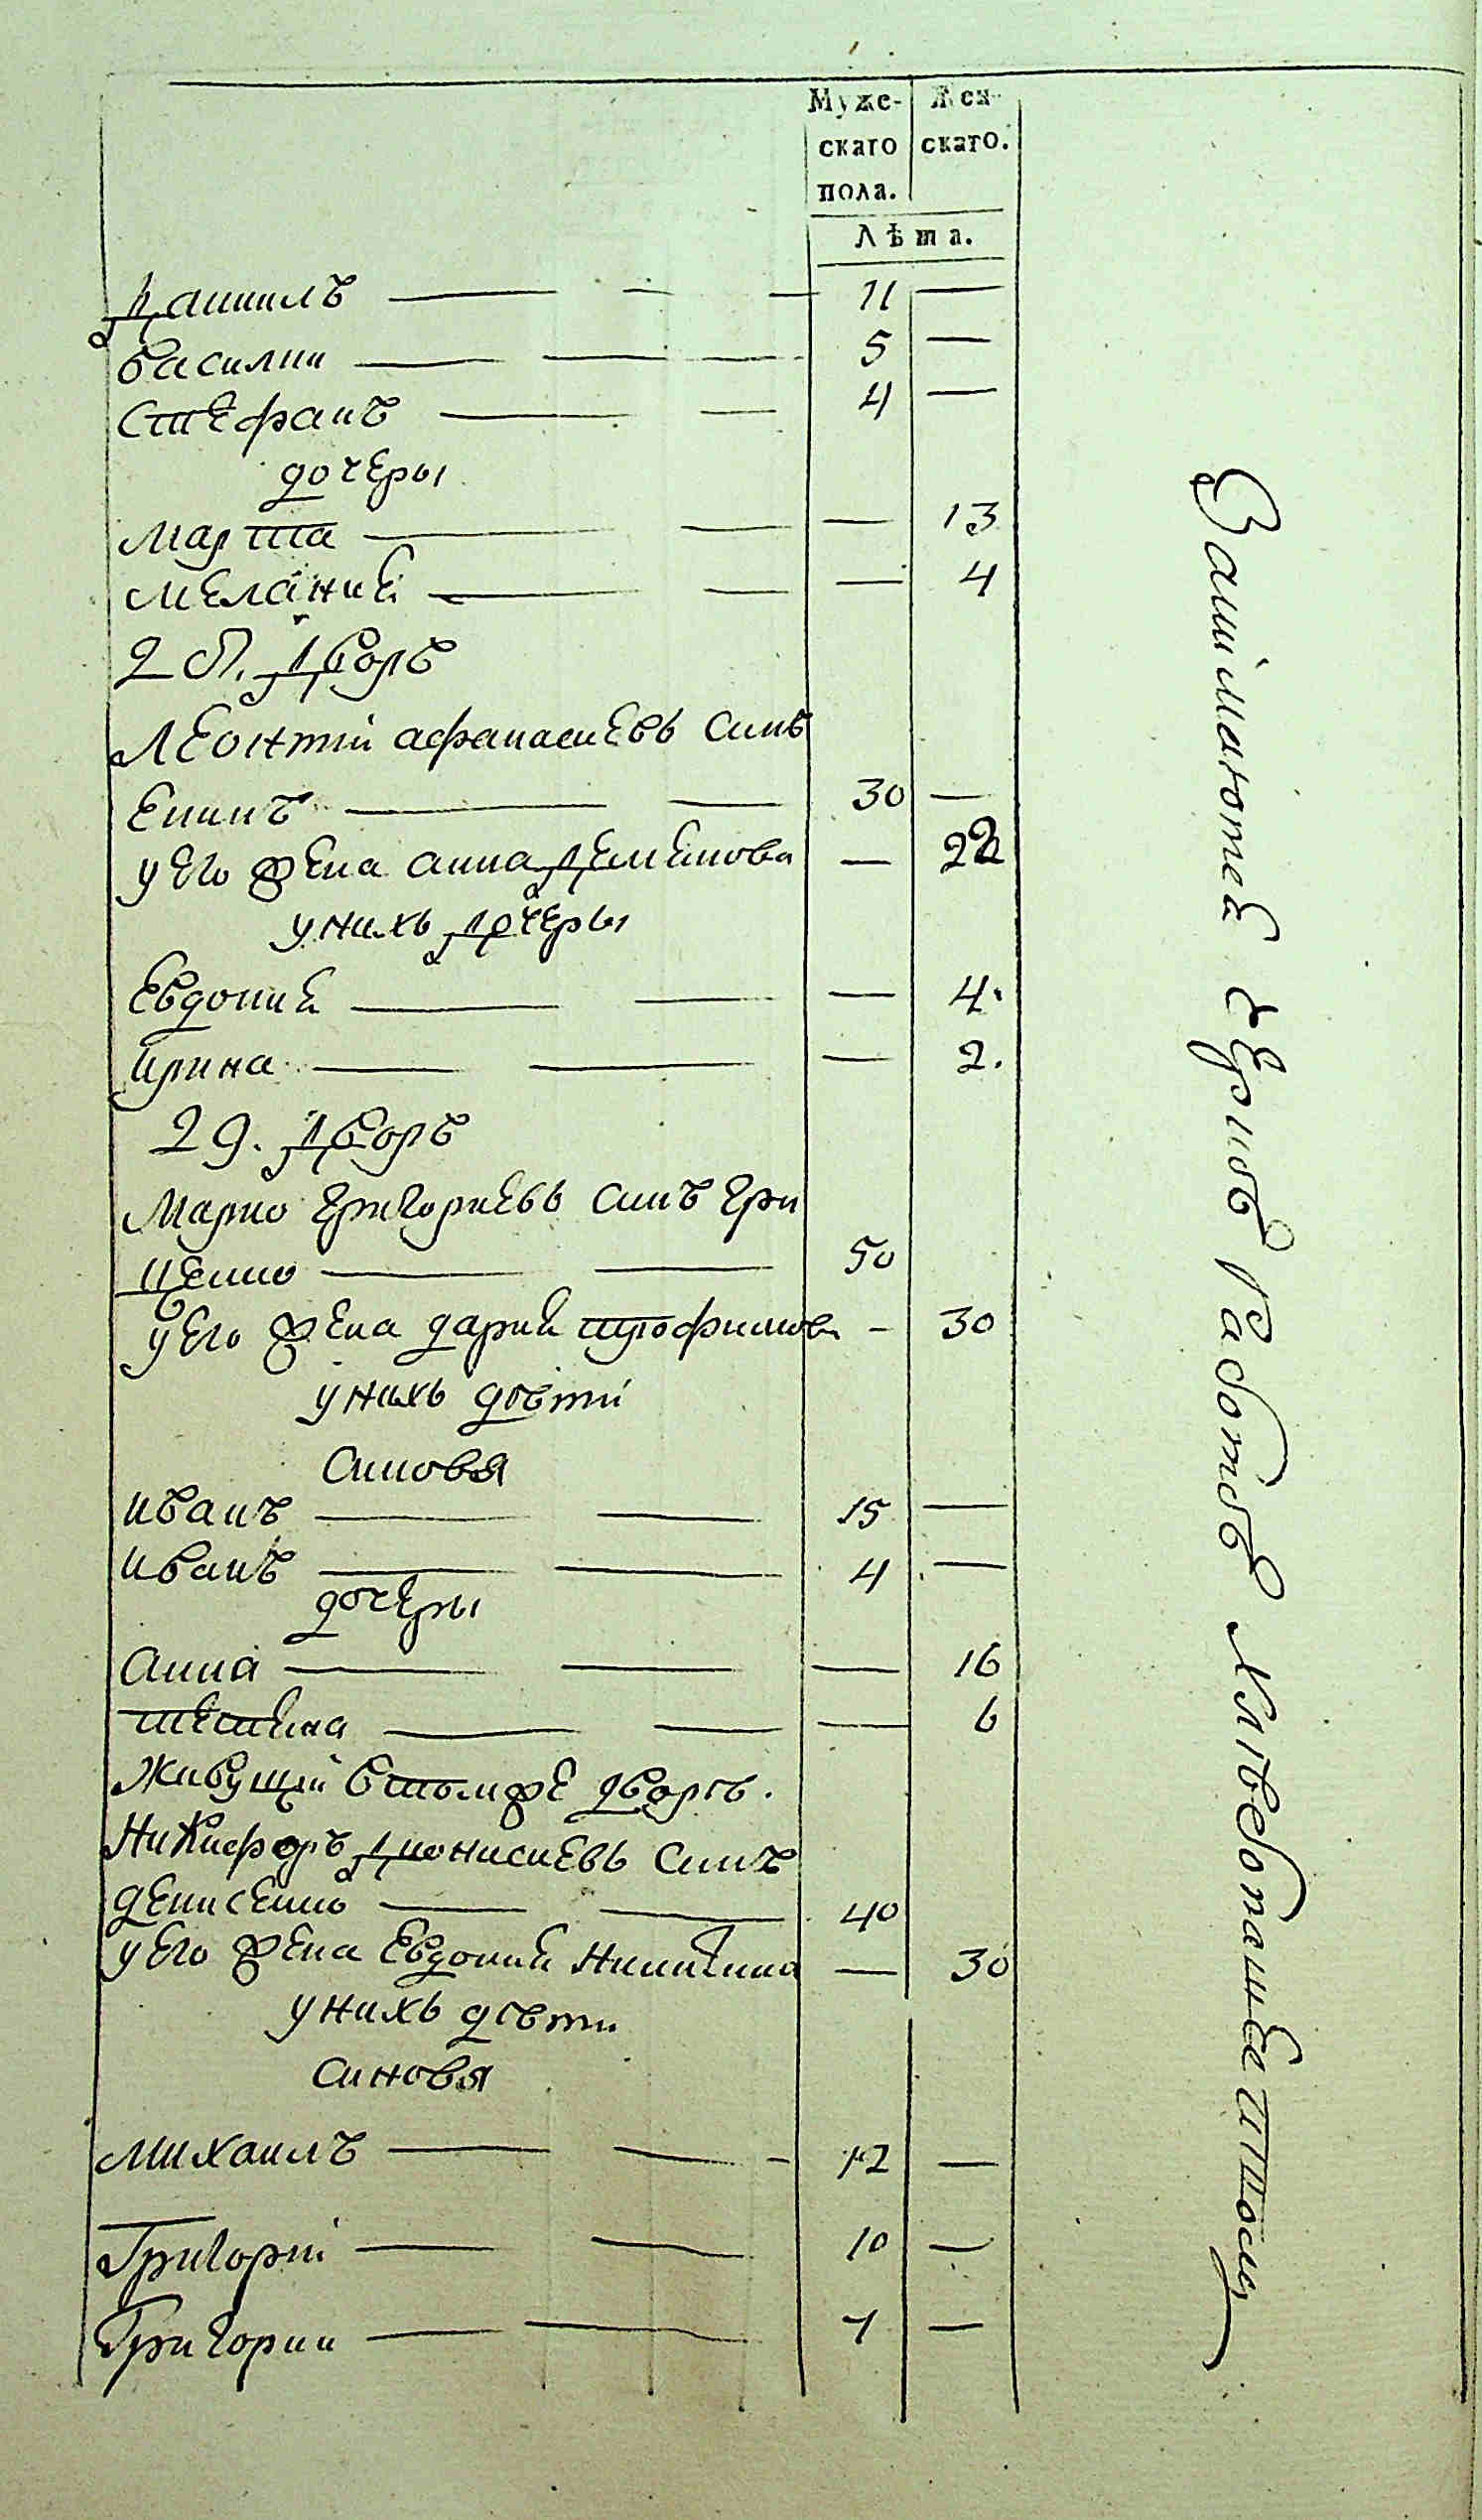 Муже- Жен-
скаго скаго.
пола.
Лѣта.
Даниилъ — — — 11 —
Василии — — — 5 —
Стефанъ — — 4 —
дочеры
Марта — — — 13
Меланиа — — — 4
28. Дворъ
Леонтий афанасиевъ синъ
— — 30 —
у его жена анна Деменова — 22
у нихъ дочеры
Евдокиа — — — 4.
Ирина — — — 2.
29. Дворъ
Марко Григориевъ синъ Гри
ценко — — 50
у его жена дариа трофимова — 30
у нихъ дѣти
Синовя
иванъ — — 15 —
иванъ — — 4 —
дочеры
анна — — — 16
тетяна — — — 6
Живущии втомже дворѣ.
Никифоръ Дионисиевъ синъ
денисенко — — 40
у его жена Евдокиа Никитина — 30
у нихъ дѣти
синовя
михаилъ — — — 12 —
Григорий — — 10 —
Григории — — —
Занимаютса Хлѣбопашествомъ